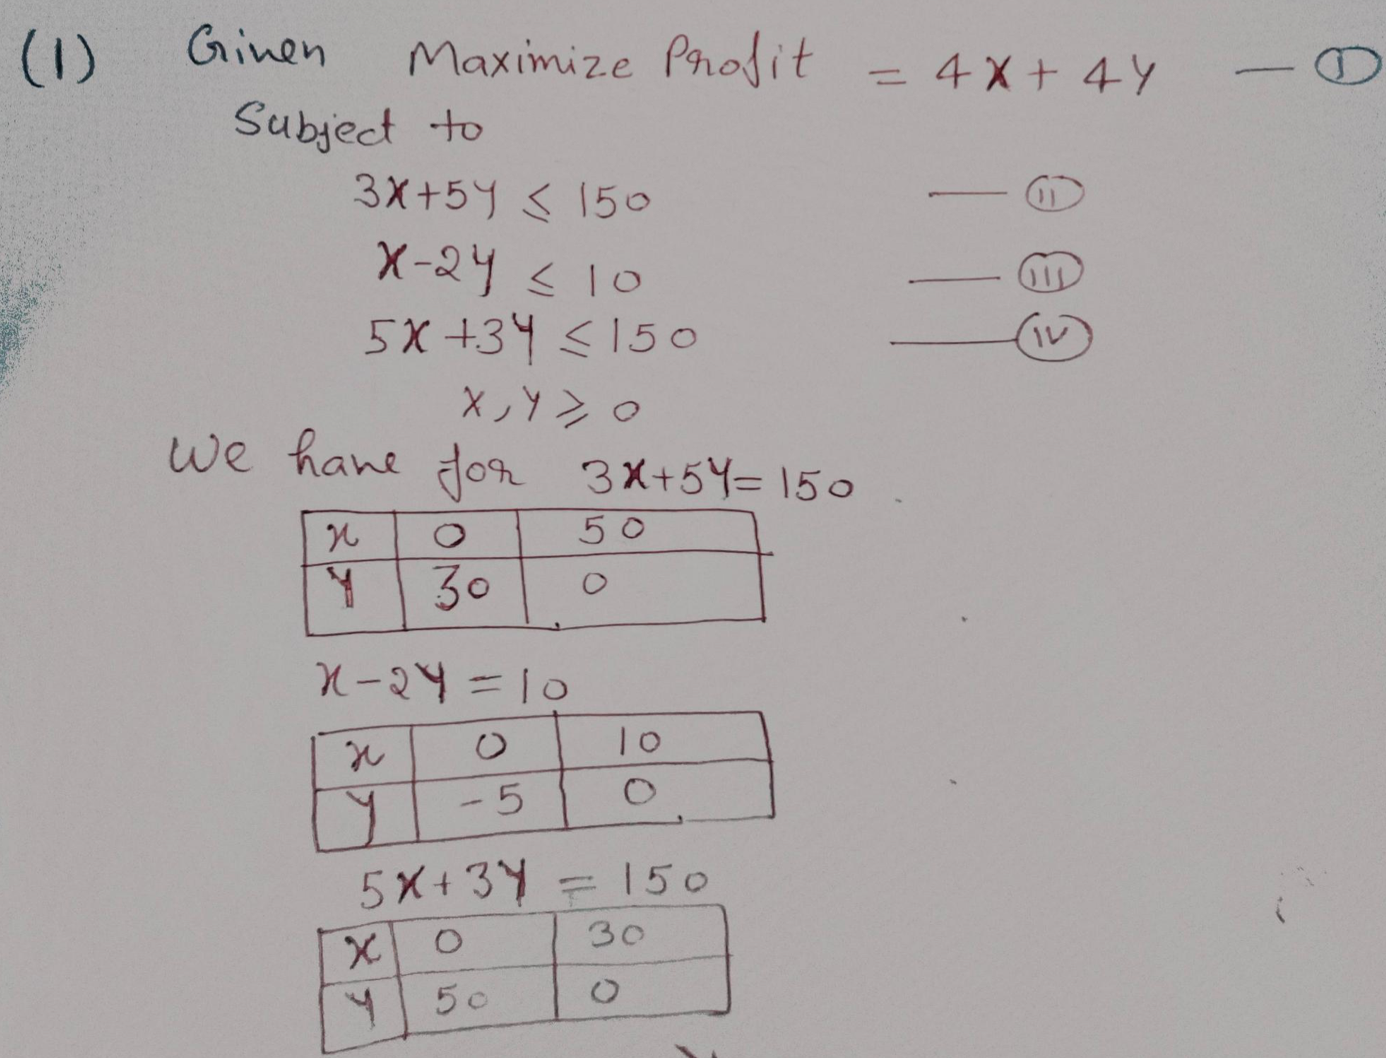 (1) Given Maximize Profit = 4X + 4Y — I
Subject to
3X+5Y ≤ 150 — II
X-2Y ≤ 10 — III
5X+3Y ≤ 150 — IV
X,Y ≥ 0
We have for 3X+5Y= 150
x 0 50
Y 30 0
x-2Y = 10
x 0 10
y -5 0
5X+3Y = 150
X 0 30
Y 50 0